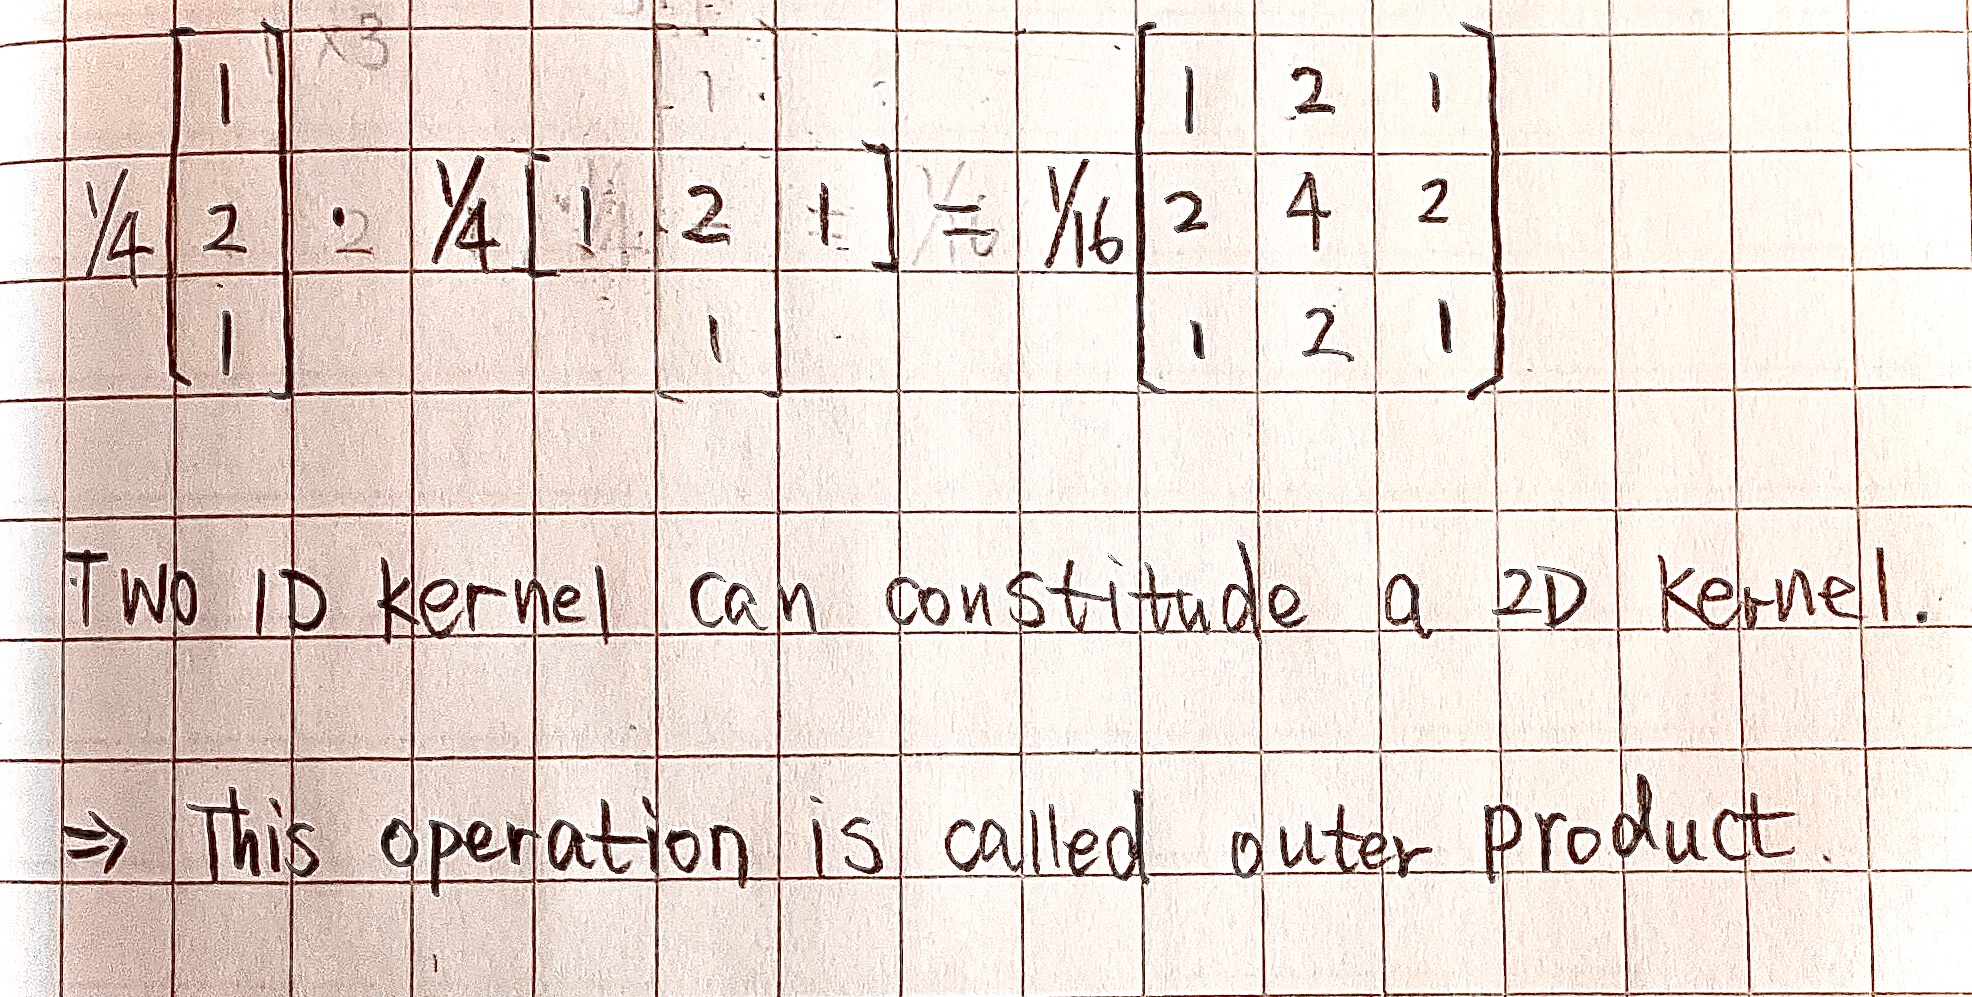 1 1 2 1
1/4 2 · 1/4 [ 1 2 1 ] = 1/16 2 4 2
1 1 1 2 1
Two 1D kernel can constitude a 2D kernel.
⇒ This operation is called outer product.